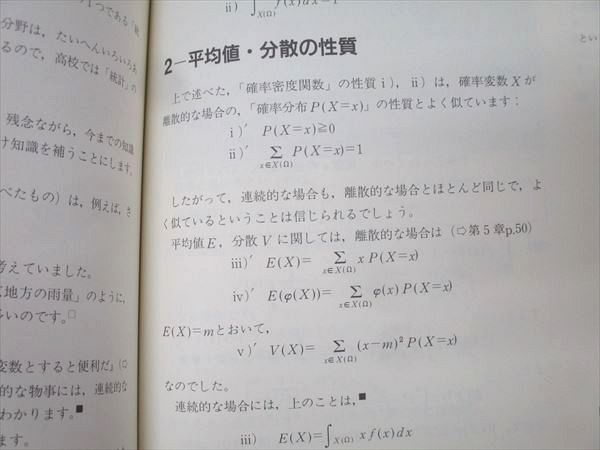 1つである「統
分野は，たいへんいろいろあ
るので，高校では「統計」の
残念ながら，今までの知識
け知識を補うことにします
べたもの）は，例えば，さ
考えていました。
地方の雨量」のように，
多いのです。□
変数とすると便利だ」（⇨
的な物事には，連続的な
わかります。■
ます。
ii） ∫X(Ω) f(x)dx=1
2−平均値・分散の性質
上で述べた，「確率密度関数」の性質 i），ii）は，確率変数 X が
離散的な場合の，「確率分布 P(X=x)」の性質とよく似ています：
i）′ P(X=x)≧0
ii）′ Σx∈X(Ω) P(X=x)=1
したがって，連続的な場合も，離散的な場合とほとんど同じで，よ
く似ているということは信じられるでしょう。
平均値 E，分散 V に関しては，離散的な場合は（⇨第5章p.50）
iii）′ E(X)= Σx∈X(Ω) x P(X=x)
iv）′ E(φ(X))= Σx∈X(Ω) φ(x) P(X=x)
E(X)=m とおいて，
v）′ V(X)= Σx∈X(Ω) (x−m)² P(X=x)
なのでした。
連続的な場合には，上のことは，■
iii） E(X)=∫X(Ω) x f(x)dx
とい